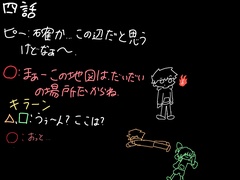 四話
ピー:確か…この辺だと思う
けどなぁ〜
○:まぁーこの地図はだいたい
の場所だからね
キラーン
△,□:うぅーん?ここは?
○:おっと…